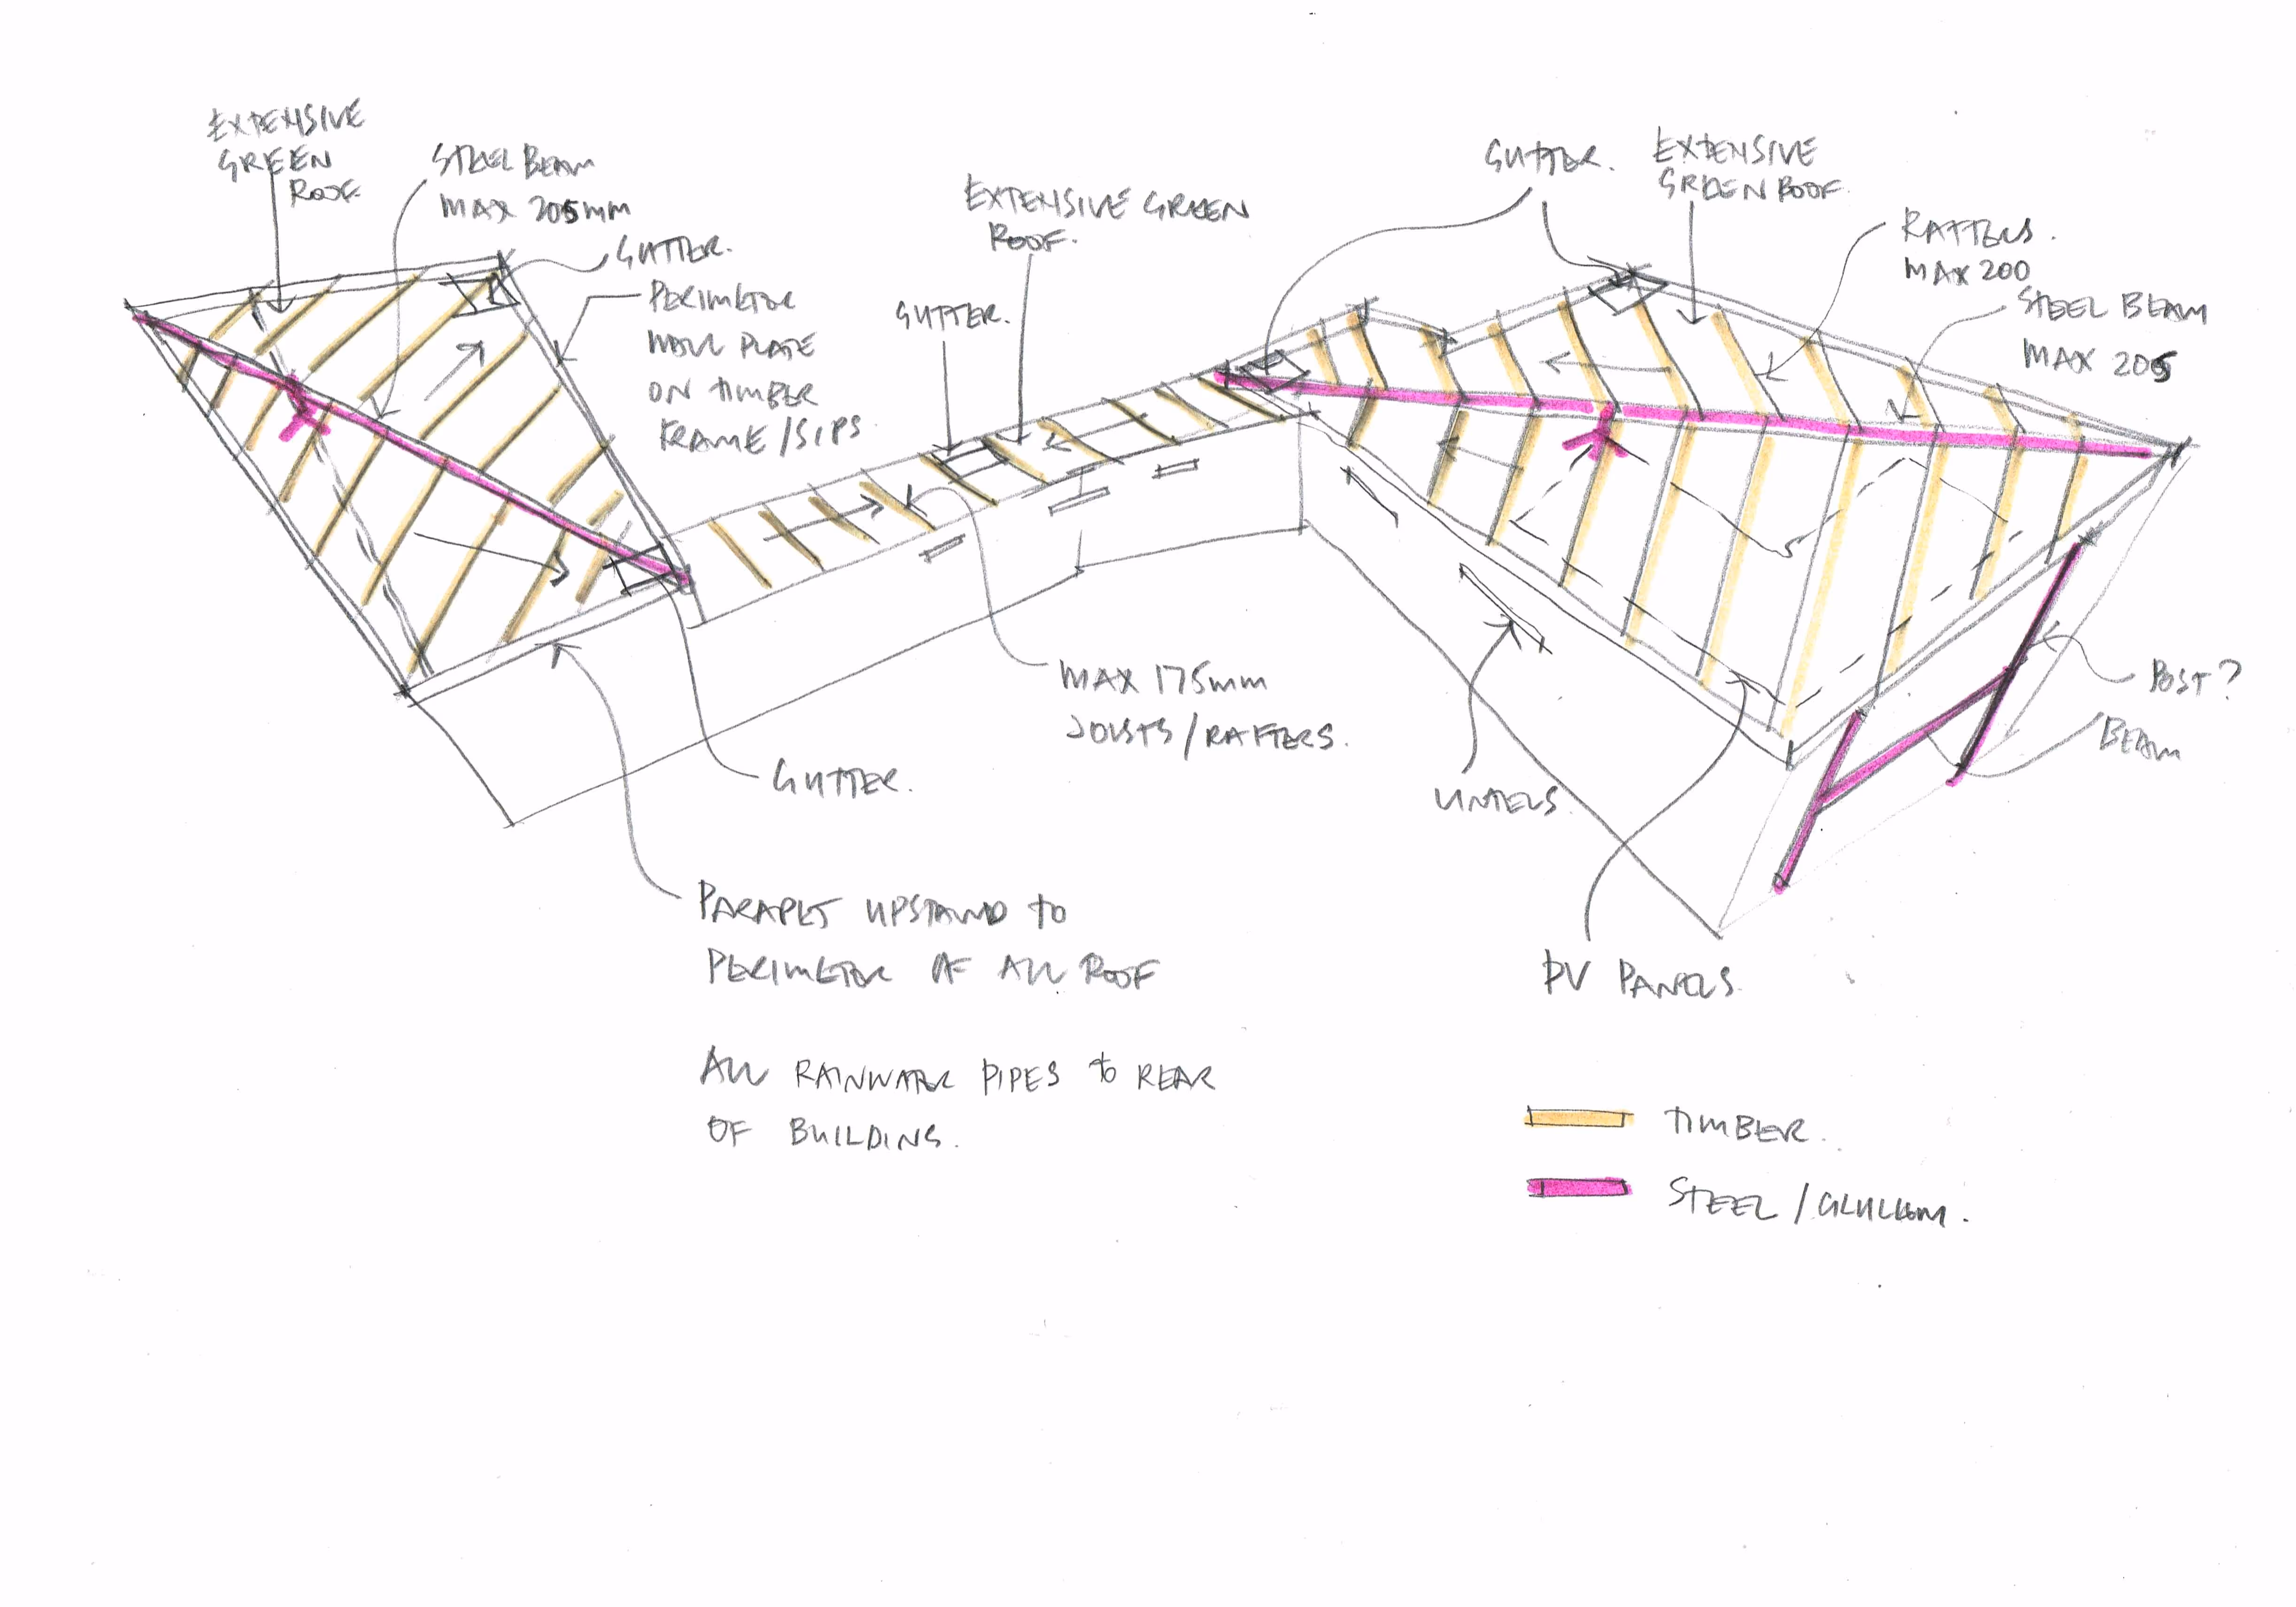 EXTENSIVE
GREEN
ROOF
STEEL BEAM
MAX 205mm
GUTTER.
PERIMETER
WALL PLATE
ON TIMBER
FRAME / SIPS
EXTENSIVE GREEN
ROOF.
GUTTER.
GUTTER.
EXTENSIVE
GREEN ROOF.
RAFTERS.
MAX 200
STEEL BEAM
MAX 205
MAX 175mm
JOISTS / RAFTERS.
GUTTER.
LINTELS
POST?
BEAM
PARAPET UPSTAND TO
PERIMETER OF ALL ROOF
PV PANELS.
ALL RAINWATER PIPES to REAR
OF BUILDING.
TIMBER.
STEEL / GLULAM.